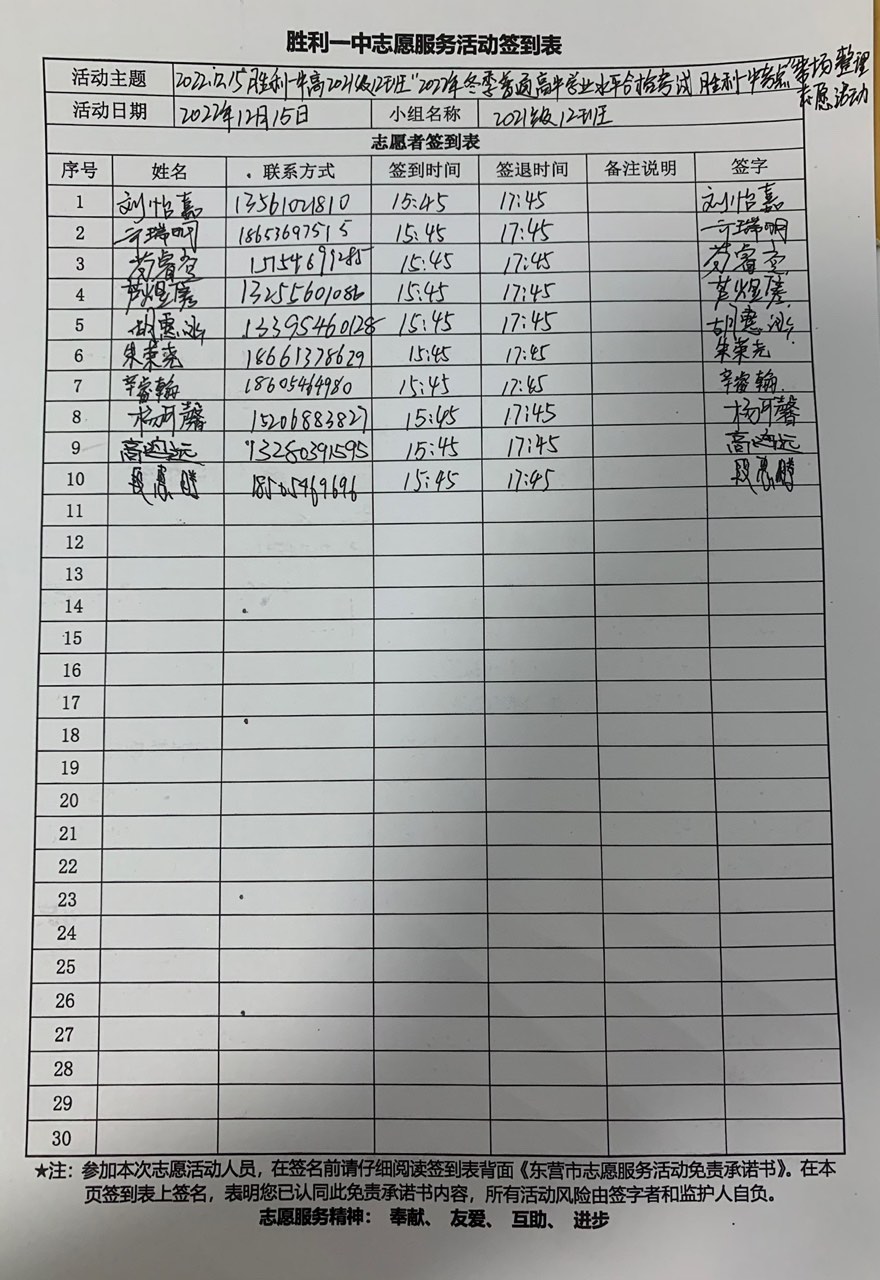 胜利一中志愿服务活动签到表
活动主题 2022.12.15胜利一中高2021级12班"2022年冬季普通高中学业水平合格考试 胜利一中考点"考场整理志愿活动
活动日期 2022年12月15日 小组名称 2021级12班
志愿者签到表
序号 姓名 联系方式 签到时间 签退时间 备注说明 签字
1 刘怡嘉 13561021810 15:45 17:45 刘怡嘉
2 瑞明 18653697515 15:45 17:45 瑞明
3 睿 15:45 17:45 睿
4 煜 13255601086 15:45 17:45 煜
5 胡惠 13395460128 15:45 17:45 胡惠
6 朱荣尧 18661378629 15:45 17:45 朱荣尧
7 辛睿翰 18605464980 15:45 17:45 辛睿翰
8 杨可馨 15206883827 15:45 17:45 杨可馨
9 高远 13280391595 15:45 17:45 高远
10 段惠腾 18505469696 15:45 17:45 段惠腾
11
12
13
14
15
16
17
18
19
20
21
22
23
24
25
26
27
28
29
30
★注：参加本次志愿活动人员，在签名前请仔细阅读签到表背面《东营市志愿服务活动免责承诺书》。在本
页签到表上签名，表明您已认同此免责承诺书内容，所有活动风险由签字者和监护人自负。
志愿服务精神： 奉献、 友爱、 互助、 进步